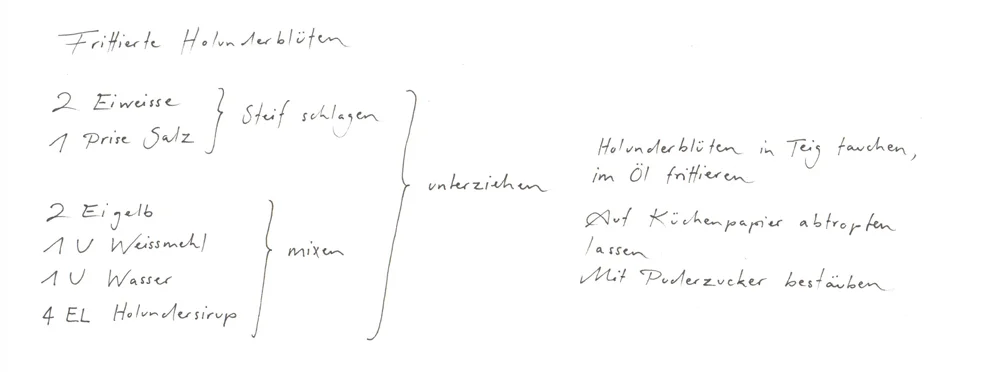 Frittierte Holunderblüten
2 Eiweisse
1 Prise Salz
Steif schlagen
2 Eigelb
1 U Weissmehl
1 U Wasser
4 EL Holundersirup
mixen
unterziehen
Holunderblüten in Teig tauchen,
im Öl frittieren
Auf Küchenpapier abtropfen
lassen
Mit Puderzucker bestäuben